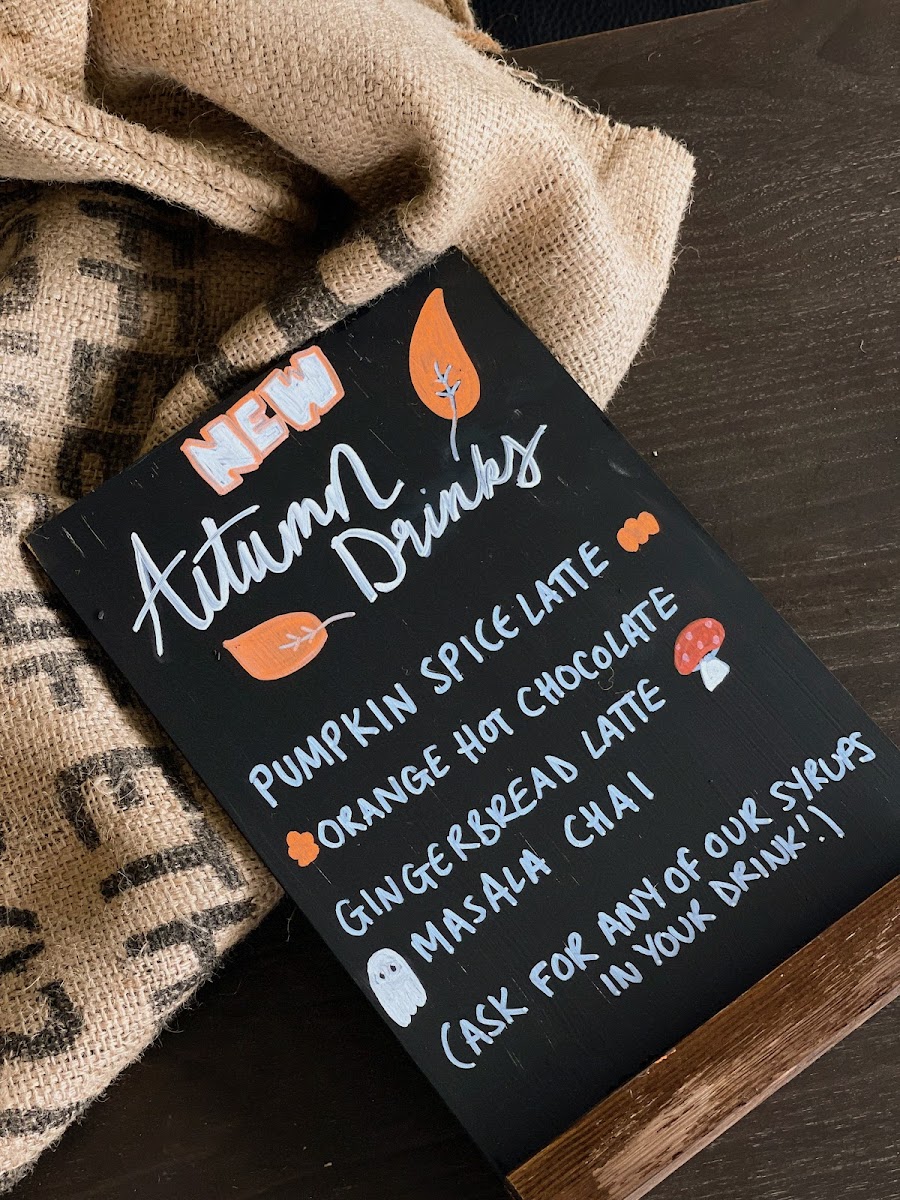 NEW
Autumn
Drinks
PUMPKIN SPICE LATTE
ORANGE HOT CHOCOLATE
GINGERBREAD LATTE
MASALA CHAI
(ASK FOR ANY OF OUR SYRUPS
IN YOUR DRINK!)